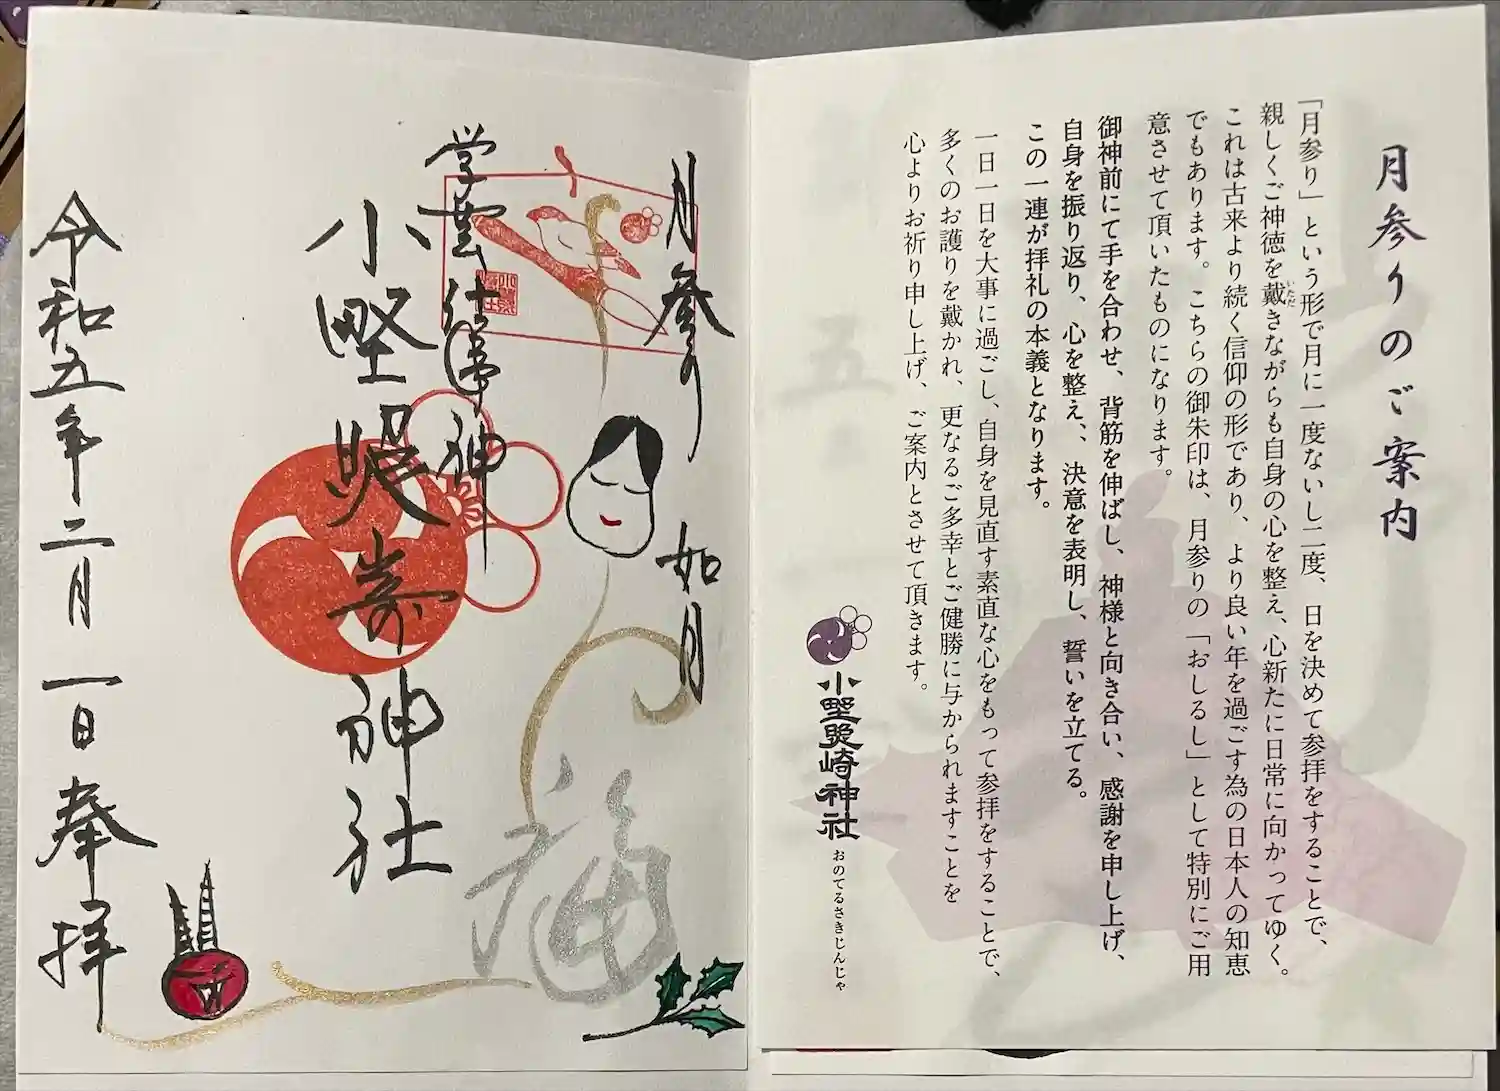 月参りのご案内
「月参り」という形で月に一度ないし二度、日を決めて参拝をすることで、
親しくご神徳を戴きながらも自身の心を整え、心新たに日常に向かってゆく。
いただ
これは古来より続く信仰の形であり、より良い年を過ごす為の日本人の知恵
でもあります。こちらの御朱印は、月参りの「おしるし」として特別にご用
意させて頂いたものになります。
御神前にて手を合わせ、背筋を伸ばし、神様と向き合い、感謝を申し上げ、
自身を振り返り、心を整え、、決意を表明し、誓いを立てる。
この一連が拝礼の本義となります。
一日一日を大事に過ごし、自身を見直す素直な心をもって参拝をすることで、
多くのお護りを戴かれ、更なるご多幸とご健勝に与かられますことを
心よりお祈り申し上げ、ご案内とさせて頂きます。
小野照崎神社
おのてるさきじんじゃ
月参り 如月
学芸仕事神
小野照崎神社
福
令和五年二月一日奉拝